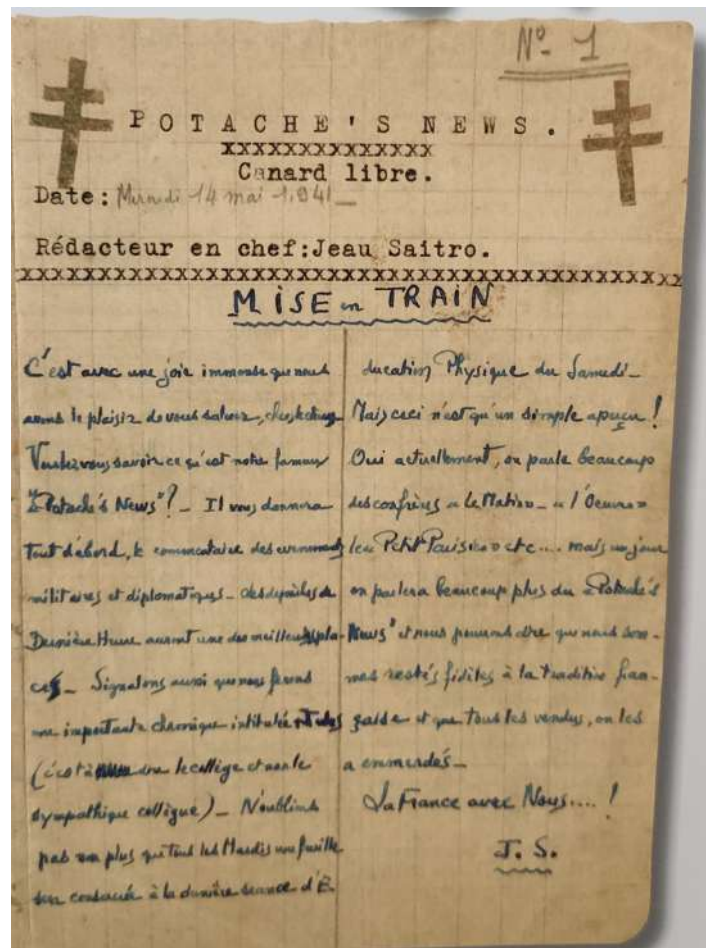 N° 1
POTACHE'S NEWS.
XXXXXXXXXXXXXX
Canard libre.
Date: Mercredi 14 mai 1.941_
Rédacteur en chef:Jeau Saitro.
xxxxxxxxxxxxxxxxxxxxxxxxxxxxxxxxxxxxxxxxxxx
MISE en TRAIN
C'est avec une joie immense que nous
avons le plaisir de vous saluer, chers lecteurs
Voulez vous savoir ce qu'est notre fameux
"Potache's News"? _ Il vous donnera
tout d'abord, le commentaire des evenements
militaires et diplomatiques _ des dépêches de
Dernière Heure auront une des meilleures pla-
ces _ Signalons aussi que nous ferons
une importante chronique intitulée
(c'est à dire le collège et non le
sympathique collègue) _ N'oublions
pas non plus que tous les Mardis une feuille
sera consacrée à la dernière séance d'E-
ducation Physique du Samedi _
Mais ceci n'est qu'un simple aperçu !
Oui actuellement, on parle beaucoup
des confrères « Le Matin » _ « l'Oeuvre »
le « Petit Parisien » etc .... mais un jour
on parlera beaucoup plus du « Potache's
News" et nous pourrons dire que nous som-
mes restés fidèles à la tradition fran-
çaise et que tous les vendus, on les
a emmerdés _
La France avec Nous .... !
J. S.